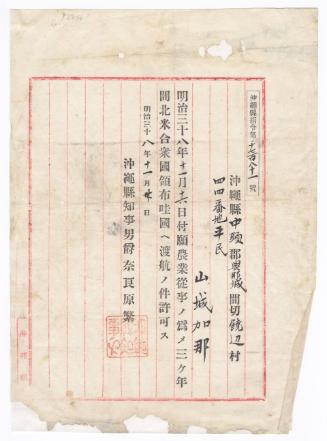 沖繩縣指令第十七百八十一號
沖繩縣中頭郡與那城間切饒辺村
四四番地平民
山城加那
明治三十八年十一月十六日付願農業從事ノ爲メ三ケ年
間北米合衆國領布哇國ヘ渡航ノ件許可ス
明治三十八年十一月廿日
沖繩縣知事男爵奈良原繁